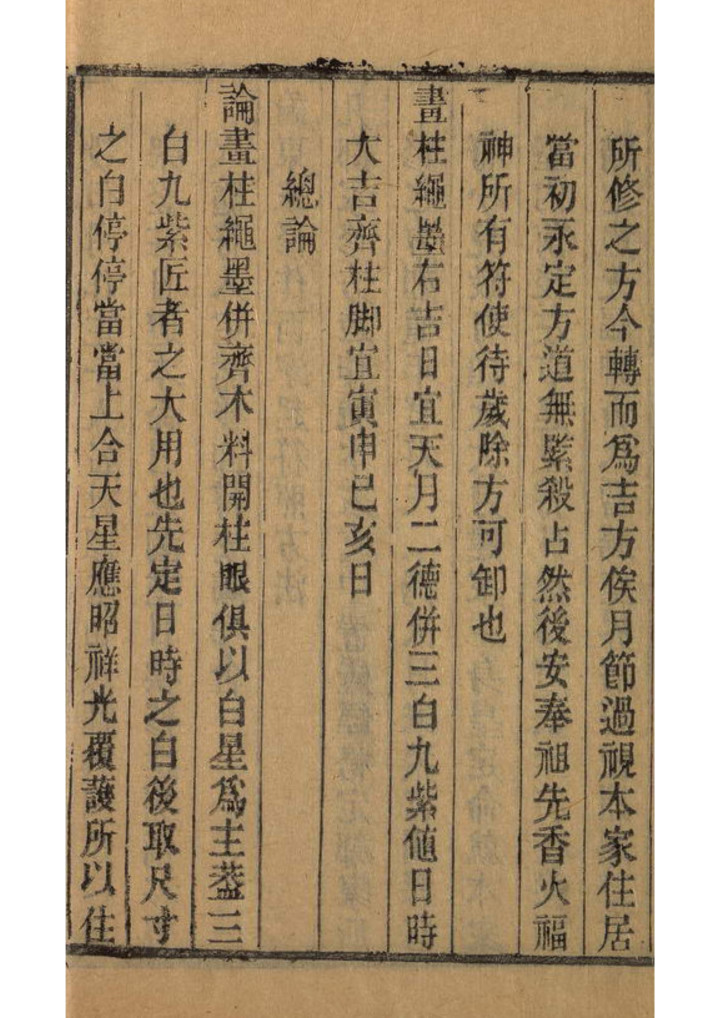 所修之方今轉而爲吉方俟月節過視本家住居
當初永定方道無緊殺占然後安奉祖先香火福
神所有符使待歲除方可卸也
畫柱繩墨右吉日宜天月二德併三白九紫值日時
大吉齊柱脚宜寅申巳亥日
總論
論畫柱繩墨併齊木料開柱眼俱以白星爲主葢三
白九紫匠者之大用也先定日時之白後取尺寸
之白停停當當上合天星應昭祥光覆護所以住